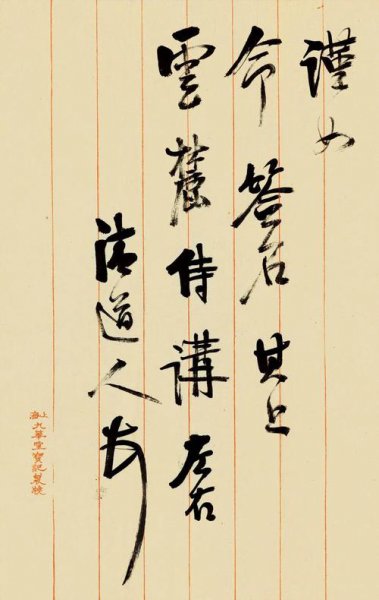 謹如
命簽名其上
雲麓侍講左右
清道人
上海九華堂寶記製牋